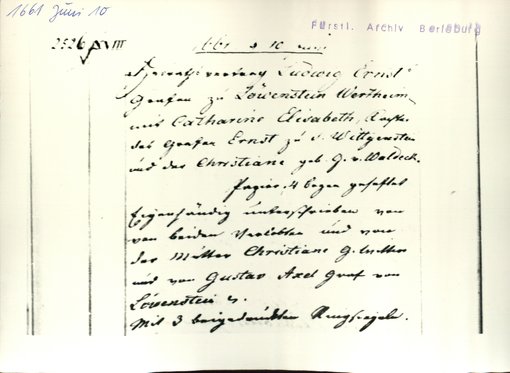 1661 Juni 10
Fürstl. Archiv Berleburg
2526 VIII
1661 10
Ludwig Ernst
Grafen zu Löwenstein Wertheim
mit Catharine Elisabeth,
des Grafen Ernst zu v. Wittgenstein
und der Christiane geb. G. v. Waldeck.
Papier. 4 Bogen geheftet
Eigenhändig unterschrieben von
von beiden Verlobten und von
der Mutter Christiane G.
und von Gustav Axel Graf von
Löwenstein
Mit 3 beigedrückten Ringsiegeln.